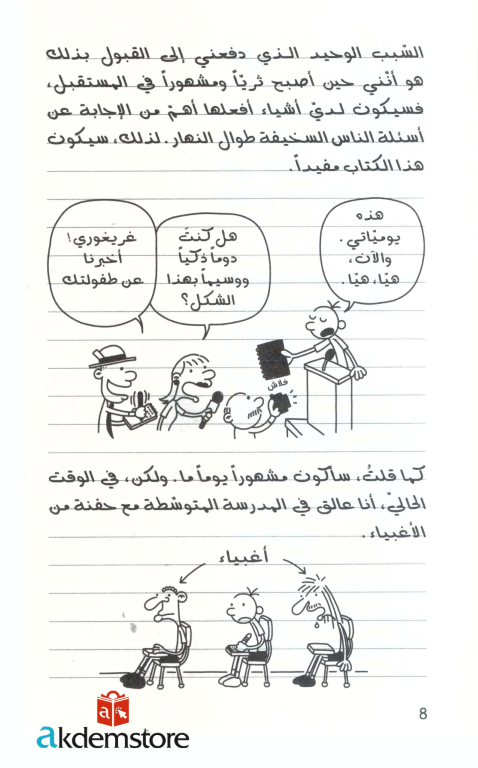 السّبب الوحيد الذي دفعني إلى القبول بذلك
هو أنّني حين أصبح ثريّاً ومشهوراً في المستقبل،
فسيكون لديّ أشياء أفعلها أهمّ من الإجابة عن
أسئلة الناس السخيفة طوال النهار. لذلك، سيكون
هذا الكتاب مفيداً.
هذه
يوميّاتي.
والآن،
هيّا، هيّا.
هل كنتَ
دوماً ذكيّاً
ووسيماً بهذا
الشكل؟
غريغوري!
أخبرنا
عن طفولتك
فلاش
كما قلتُ، سأكون مشهوراً يوماً ما. ولكن، في الوقت
الحاليّ، أنا عالق في المدرسة المتوسّطة مع حفنة من
الأغبياء.
أغبياء
8
akdemstore